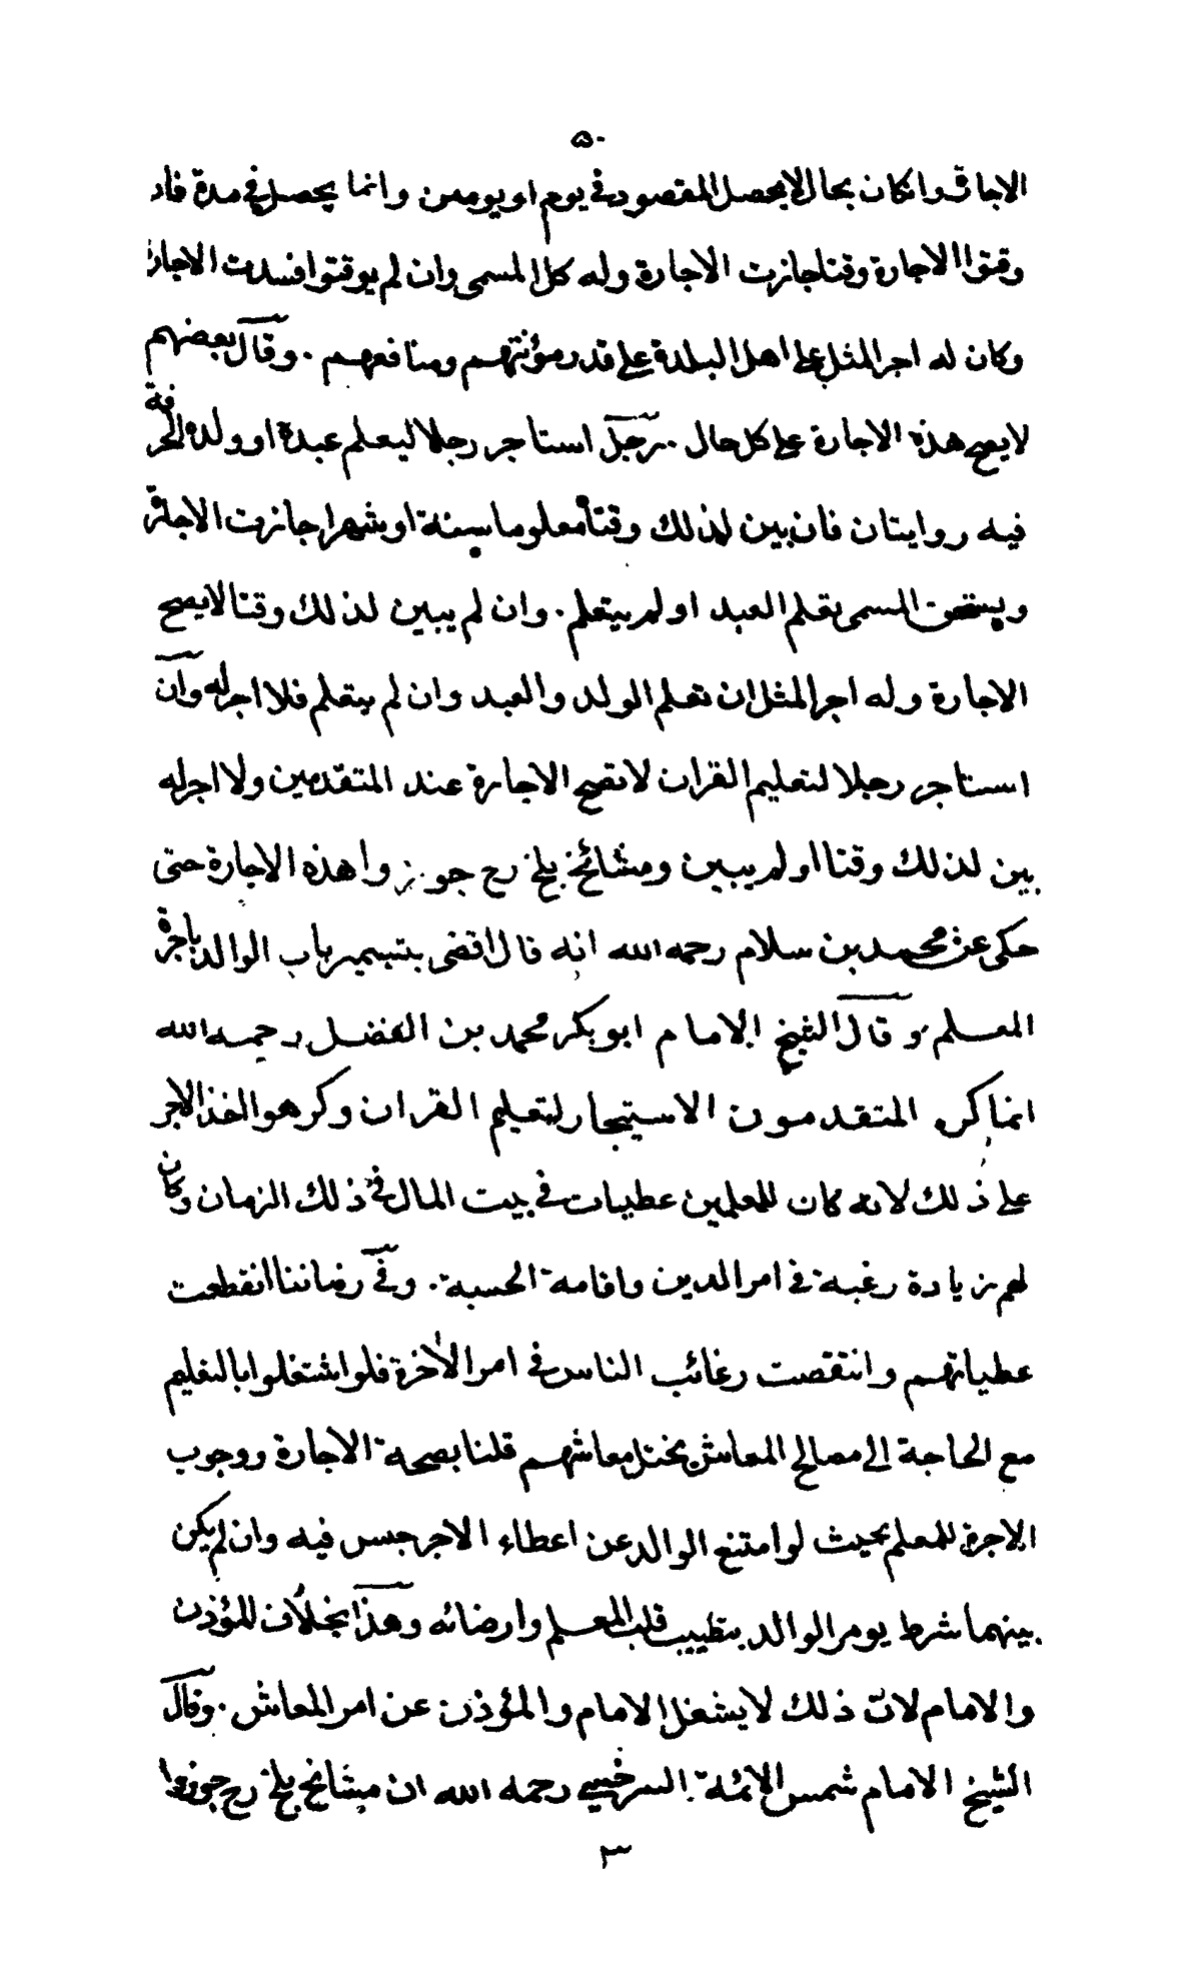 ۵۰
الاجارة وانكان بحال لا يحصل المقصود في يوم او يومين وانما يحصل في مدة فان
وقتوا الاجارة وقتا جازت الاجارة وله كل المسمى وان لم يوقتوا فسدت الاجارة
وكان له اجر المثل على اهل البلدة على قدر مؤنتهم ومنافعهم . وقال بعضهم
لا يصح هذه الاجارة على كل حال . رجل استاجر رجلا ليعلم عبده او ولده الحرفة
فيه روايتان فان بين لذلك وقتا معلوما سنة او شهرا جازت الاجارة
ويستحق المسمى تعلم العبد او لم يتعلم . وان لم يبين لذلك وقتا لا يصح
الاجارة وله اجر المثل ان تعلم الولد والعبد وان لم يتعلم فلا اجر له وان
استاجر رجلا لتعليم القران لا تصح الاجارة عند المتقدمين ولا اجر له
بين لذلك وقتا او لم يبين ومشائخ بلخ رح جوزوا هذه الاجارة حتى
حكى عن محمد بن سلام رحمه الله انه قال اقضى بتسمير باب الوالد باجرة
المعلم وقال الشيخ الامام ابو بكر محمد بن الفضل رحمه الله
انما كره المتقدمون الاستيجار لتعليم القران وكرهوا اخذ الاجر
على ذلك لانه كان للمعلمين عطيات في بيت المال في ذلك الزمان وكان
لهم زيادة رغبة في امر الدين واقامة الحسبة . وفي زماننا انقطعت
عطياتهم وانتقصت رغائب الناس في امر الآخرة فلو اشتغلوا بالتعليم
مع الحاجة الى مصالح المعاش يختل معاشهم قلنا بصحة الاجارة ووجوب
الاجرة للمعلم بحيث لو امتنع الوالد عن اعطاء الاجر حبس فيه وان لم يكن
بينهما شرط يومر الوالد بتطييب قلب المعلم وارضائه وهذا بخلاف للمؤذن
والامام لانّ ذلك لا يشغل الامام والمؤذن عن امر المعاش . وقال
الشيخ الامام شمس الائمة السرخسي رحمه الله ان مشائخ بلخ رح جوزوا
٣